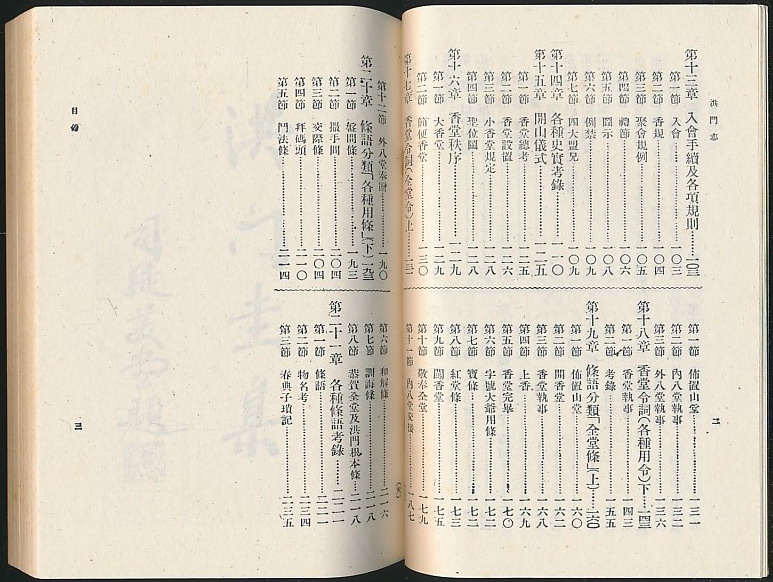 洪門志
第十三章 入會手續及各項規則……一〇三
第一節 入會……一〇三
第二節 香規……一〇四
第三節 聚會規例……一〇五
第四節 禮節……一〇六
第五節 圖示……一〇八
第六節 例禁……一〇九
第七節 四大盟兄……一〇九
第十四章 各種史實考錄……一一〇
第十五章 開山儀式……一二五
第一節 香堂總考……一二五
第二節 香堂設置……一二六
第三節 小香堂規定……一二八
第四節 聖位圖……一二八
第十六章 香堂秩序……一二九
第一節 大香堂……一二九
第二節 簡便香堂……一三〇
第十七章 香堂令詞(全堂令)上……一三一
第一節 佈置山堂……一三一
第二節 內八堂執事……一三二
第三節 外八堂執事……一三六
第十八章 香堂令詞(各種用令)下……一四三
第一節 香堂執事……一四三
第二節 考錄……一五五
第十九章 條語分類「全堂條」(上)……一六〇
第一節 佈置山堂……一六〇
第二節 開香堂……一六六
第三節 香堂執事……一六八
第四節 上香……一六九
第五節 香堂完畢……一七〇
第六節 字號大爺用條……一七二
第七節 寶條……一七二
第八節 紅堂條……一七三
第九節 鬧香堂……一七五
第十節 敬奉全堂……一七九
第十一節 內八堂交接……一八七
二
目錄
第十二節 外八堂奉贈……一九〇
第二十章 條語分類「各種用條」(下)一九三
第一節 盤問條……一九三
第二節 撒手問……二〇四
第三節 交際條……二〇四
第四節 拜碼頭……二一〇
第五節 門法條……二一四
第六節 和解條……二一六
第七節 訓誨條……二一八
第八節 恭賀全堂及洪門根本條……二一八
第二十一章 各種條語考錄……二二一
第一節 條語……二二一
第二節 物名考……二三四
第三節 春典子瓆記……二三五
三